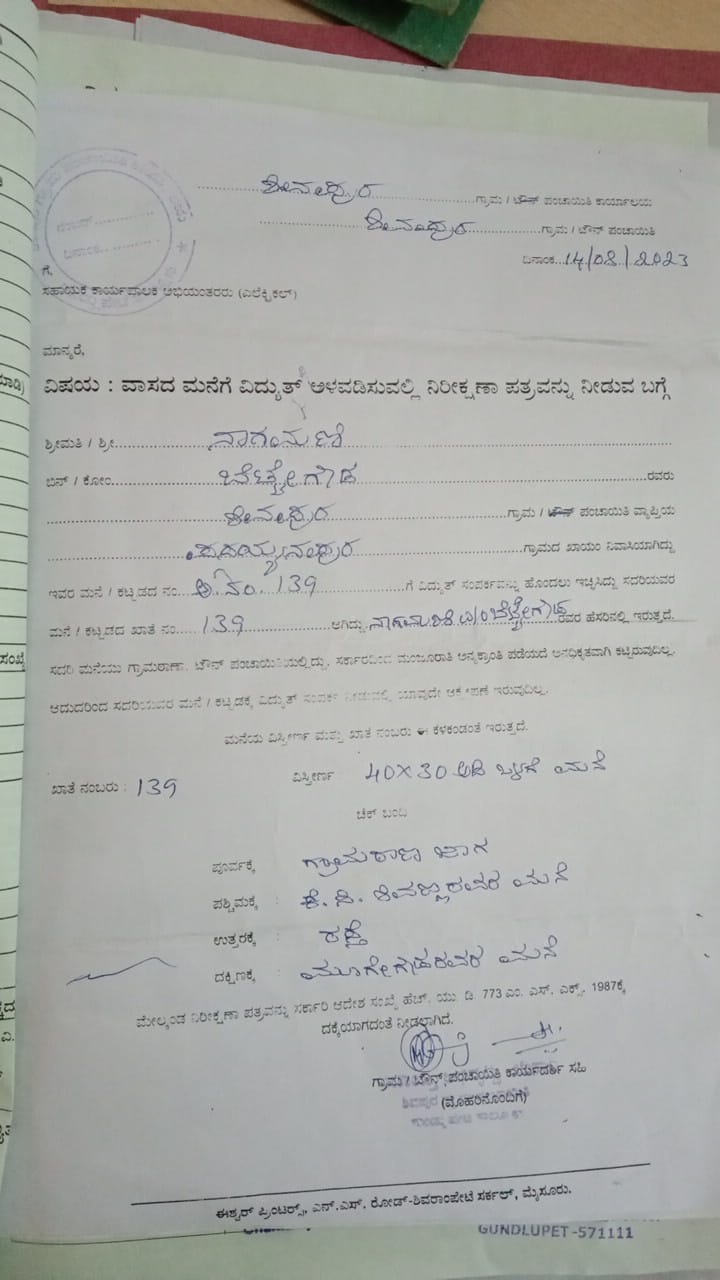 ಶಿವಪುರ ಗ್ರಾಮ / ಟೌನ್ ಪಂಚಾಯಿತಿ ಕಾರ್ಯಾಲಯ
ಶಿವಪುರ ಗ್ರಾಮ / ಟೌನ್ ಪಂಚಾಯಿತಿ
ದಿನಾಂಕ 14/08/2023
ಗೆ,
ಸಹಾಯಕ ಕಾರ್ಯಪಾಲಕ ಅಭಿಯಂತರರು (ಎಲೆಕ್ಟ್ರಿಕಲ್)
ಮಾನ್ಯರೆ,
ವಿಷಯ : ವಾಸದ ಮನೆಗೆ ವಿದ್ಯುತ್ ಅಳವಡಿಸುವಲ್ಲಿ ನಿರೀಕ್ಷಣಾ ಪತ್ರವನ್ನು ನೀಡುವ ಬಗ್ಗೆ
ಶ್ರೀಮತಿ / ಶ್ರೀ ನಾಗಮಣಿ
ಬಿನ್ / ಕೋಂ ಬೆಟ್ಟೇಗೌಡ ರವರು
ಶಿವಪುರ ಗ್ರಾಮ / ಟೌನ್ ಪಂಚಾಯಿತಿ ವ್ಯಾಪ್ತಿಯ
ಗ್ರಾಮದ ಖಾಯಂ ನಿವಾಸಿಯಾಗಿದ್ದು
ಇವರ ಮನೆ / ಕಟ್ಟಡದ ನಂ. ಅ.ನಂ. 139 ಗೆ ವಿದ್ಯುತ್ ಸಂಪರ್ಕವನ್ನು ಹೊಂದಲು ಇಚ್ಛಿಸಿದ್ದು ಸದರಿಯವರ
ಮನೆ / ಕಟ್ಟಡದ ಖಾತೆ ನಂ. 139 ಆಗಿದ್ದು ನಾಗಮಣಿ ಬೆಟ್ಟೇಗೌಡ ರವರ ಹೆಸರಿನಲ್ಲಿ ಇರುತ್ತದೆ.
ಸದರಿ ಮನೆಯು ಗ್ರಾಮಠಾಣಾ, ಟೌನ್ ಪಂಚಾಯಿತಿಯಲ್ಲಿದ್ದು, ಸರ್ಕಾರದಿಂದ ಮಂಜೂರಾತಿ ಅನ್ಯಕ್ರಾಂತಿ ಪಡೆಯದೆ ಅನಧಿಕೃತವಾಗಿ ಕಟ್ಟಿರುವುದಿಲ್ಲ.
ಆದುದರಿಂದ ಸದರಿಯವರ ಮನೆ / ಕಟ್ಟಡಕ್ಕೆ ವಿದ್ಯುತ್ ಸಂಪರ್ಕ ನೀಡುವಲ್ಲಿ ಯಾವುದೇ ಆಕ್ಷೇಪಣೆ ಇರುವುದಿಲ್ಲ.
ಮನೆಯ ವಿಸ್ತೀರ್ಣ ಮತ್ತು ಖಾತೆ ನಂಬರು ಈ ಕೆಳಕಂಡಂತೆ ಇರುತ್ತದೆ.
ಖಾತೆ ನಂಬರು : 139 ವಿಸ್ತೀರ್ಣ 40X30 ಅಡಿ ಮನೆ
ಚೆಕ್ ಬಂದಿ
ಪೂರ್ವಕ್ಕೆ : ಗ್ರಾಮಠಾಣ ಜಾಗ
ಪಶ್ಚಿಮಕ್ಕೆ : ಕೆ. ಪಿ. ಶಿವಣ್ಣರವರ ಮನೆ
ಉತ್ತರಕ್ಕೆ : ರಸ್ತೆ
ದಕ್ಷಿಣಕ್ಕೆ : ಮೂಗೇಗೌಡರವರ ಮನೆ
ಮೇಲ್ಕಂಡ ನಿರೀಕ್ಷಣಾ ಪತ್ರವನ್ನು ಸರ್ಕಾರಿ ಆದೇಶ ಸಂಖ್ಯೆ ಹೆಚ್. ಯು. ಡಿ. 773 ಎಂ. ಎಸ್. ಎಕ್ಸ್. 1987ಕ್ಕೆ
ದಕ್ಕೆಯಾಗದಂತೆ ನೀಡಲಾಗಿದೆ.
ಗ್ರಾಮ / ಟೌನ್ ಪಂಚಾಯಿತಿ ಕಾರ್ಯದರ್ಶಿ ಸಹಿ
(ಮೊಹರಿನೊಂದಿಗೆ)
ಈಶ್ವರ್ ಪ್ರಿಂಟರ್ಸ್, ಎನ್.ಎಸ್. ರೋಡ್-ಶಿವರಾಂಪೇಟೆ ಸರ್ಕಲ್, ಮೈಸೂರು.
GUNDLUPET -571111